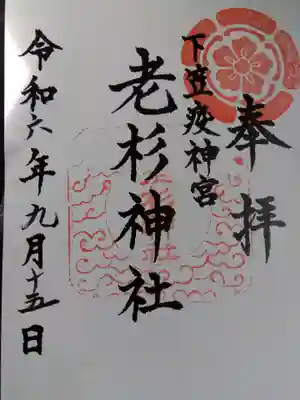 奉拝
下笠疫神宮
老杉神社
令和六年九月十五日